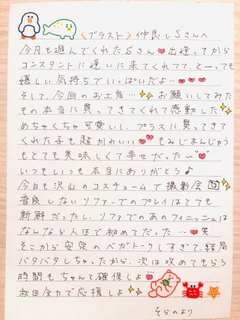 〈プラスト〉仲良しSさんへ
今月も選んでくれたSさん 出逢ってから
コンスタントに逢いに来てくれてて、とーっても
嬉しい気持ちでいっぱいだよ…
そして、今回のお土産… お願いしてみた
もの本当に買ってきてくれて感動した
めちゃくちゃ可愛いし、プラスに買ってきて
くれた子も超かわいい もみじまんじゅう
もとても美味しくて幸せだった〜
いつもいつも本当にありがとう♪
今日も沢山のコスチュームで撮影会
普段しないソファでのプレイはとても
新鮮だったし、ソファでのあのフィニッシュは
なんなら人生で初めてだった…笑
そこから安定のベガトークしすぎて、結局
バタバタしちゃったから、次は攻めてもらう
時間もちゃんと確保しよ
秋田全力で応援しよ
そらのより